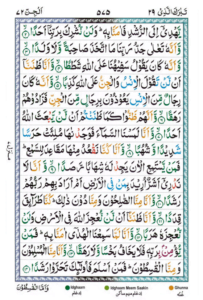 تبٰرك الذی ٢٩ الجن ٧٢
يَّهْدِىْۤ اِلَى الرُّشْدِ فَاٰمَنَّا بِهٖ ؕ وَلَنْ نُّشْرِكَ بِرَبِّنَاۤ اَحَدًا ۙ
وَّاَنَّهٗ تَعٰلٰى جَدُّ رَبِّنَا مَا اتَّخَذَ صَاحِبَةً وَّلَا وَلَدًا ۙ وَّ
اَنَّهٗ كَانَ يَقُوْلُ سَفِيْهُنَا عَلَى اللّٰهِ شَطَطًا ۙ وَّاَنَّا ظَنَنَّاۤ
اَنْ لَّنْ تَقُوْلَ الْاِنْسُ وَالْجِنُّ عَلَى اللّٰهِ كَذِبًا ۙ وَّاَنَّهٗ كَانَ
رِجَالٌ مِّنَ الْاِنْسِ يَعُوْذُوْنَ بِرِجَالٍ مِّنَ الْجِنِّ فَزَادُوْهُمْ
رَهَقًا ۙ وَّاَنَّهُمْ ظَنُّوْا كَمَا ظَنَنْتُمْ اَنْ لَّنْ يَّبْعَثَ اللّٰهُ
اَحَدًا ۙ وَّاَنَّا لَمَسْنَا السَّمَآءَ فَوَجَدْنٰهَا مُلِئَتْ حَرَسًا
شَدِيْدًا وَّشُهُبًا ۙ وَّاَنَّا كُنَّا نَقْعُدُ مِنْهَا مَقَاعِدَ لِلسَّمْعِ ؕ
فَمَنْ يَّسْتَمِعِ الْاٰنَ يَجِدْ لَهٗ شِهَابًا رَّصَدًا ۙ وَّاَنَّا لَا
نَدْرِىْۤ اَشَرٌّ اُرِيْدَ بِمَنْ فِى الْاَرْضِ اَمْ اَرَادَ بِهِمْ رَبُّهُمْ
رَشَدًا ۙ وَّاَنَّا مِنَّا الصّٰلِحُوْنَ وَمِنَّا دُوْنَ ذٰلِكَ ؕ كُنَّا طَرَآئِقَ
قِدَدًا ۙ وَّاَنَّا ظَنَنَّاۤ اَنْ لَّنْ نُّعْجِزَ اللّٰهَ فِى الْاَرْضِ وَلَنْ
نُّعْجِزَهٗ هَرَبًا ۙ وَّاَنَّا لَمَّا سَمِعْنَا الْهُدٰٓى اٰمَنَّا بِهٖ ؕ فَمَنْ
يُّؤْمِنْۢ بِرَبِّهٖ فَلَا يَخَافُ بَخْسًا وَّلَا رَهَقًا ۙ وَّاَنَّا مِنَّا الْمُسْلِمُوْنَ
وَمِنَّا الْقٰسِطُوْنَ ؕ فَمَنْ اَسْلَمَ فَاُولٰٓئِكَ تَحَرَّوْا رَشَدًا
وَاَمَّا الْقٰسِطُوْنَ